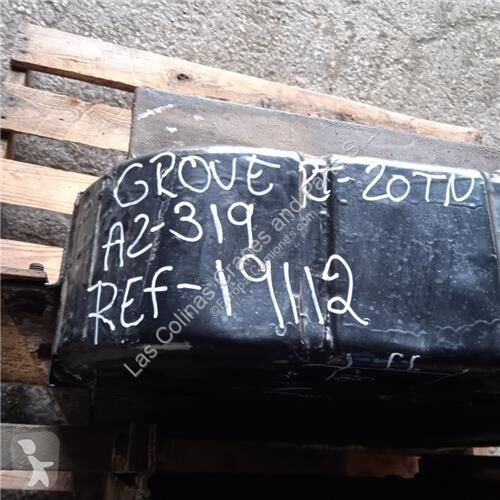 GROVE RT-20TN
A2-319
REF-19112
Las Colinas Cranes and Parts, S
©Europa-Camiones.com